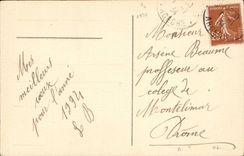 Mes
meilleurs
vœux
pour l'année
1931
Monsieur
Arsène Beaume
professeur au
colège de
Montélimar
Drôme